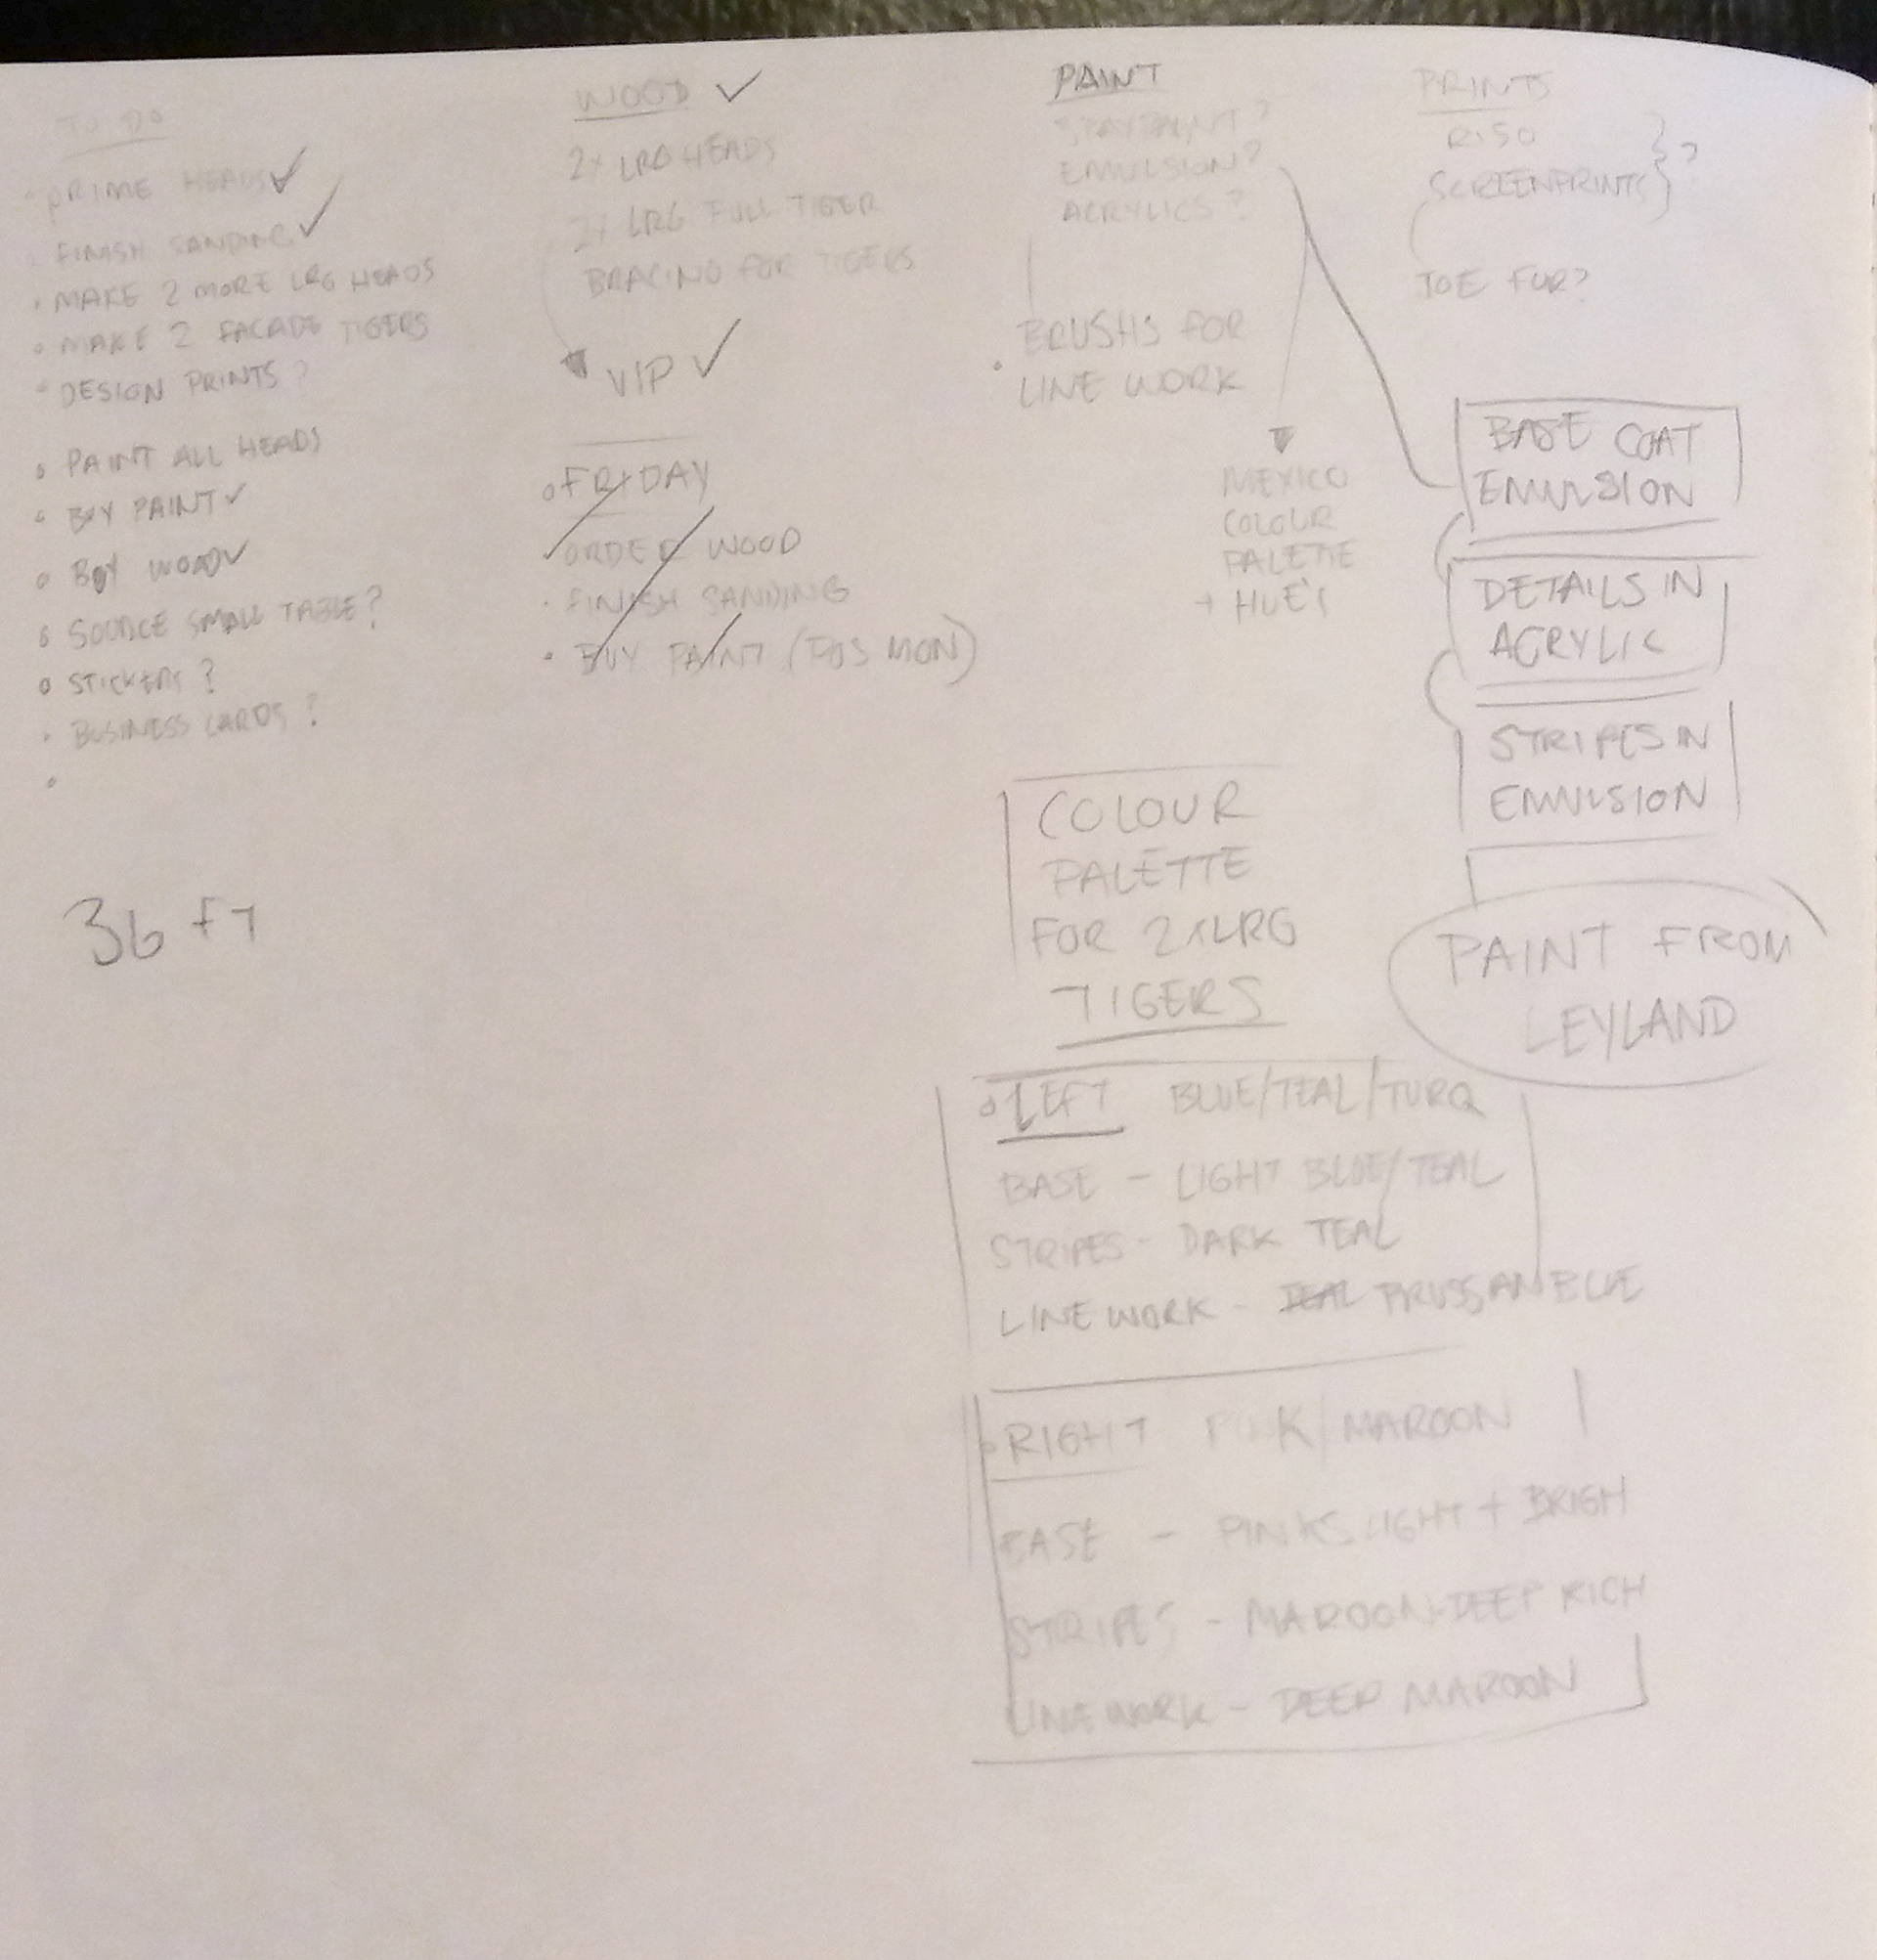 TO DO
PRIME HEADS ✓
FINISH SANDING ✓
MAKE 2 MORE LRG HEADS
MAKE 2 FACADE TIGERS
DESIGN PRINTS?
PAINT ALL HEADS
BUY PAINT ✓
BUY WOOD ✓
SOURCE SMALL TABLE?
STICKERS?
BUSINESS CARDS?
36 FT
WOOD ✓
2x LRG HEADS
2x LRG FULL TIGER
BRACING FOR TIGERS
VIP ✓
FRIDAY
ORDER WOOD
FINISH SANDING
BUY PAINT (POS MON)
PAINT
SPRAYPAINT?
EMULSION?
ACRYLICS?
BRUSHS FOR
LINE WORK
MEXICO
COLOUR
PALETTE
+ HUE'S
PRINTS
RISO
SCREENPRINTS } ?
JOE FUR?
BASE COAT
EMULSION
DETAILS IN
ACRYLIC
STRIPES IN
EMULSION
PAINT FROM
LEYLAND
COLOUR
PALETTE
FOR 2xLRG
TIGERS
LEFT BLUE/TEAL/TURQ
BASE - LIGHT BLUE/TEAL
STRIPES - DARK TEAL
LINE WORK - TEAL PRUSSAN BLUE
RIGHT PINK/MAROON
BASE - PINKS LIGHT + BRIGH
STRIPES - MAROON-DEEP RICH
LINEWORK - DEEP MAROON